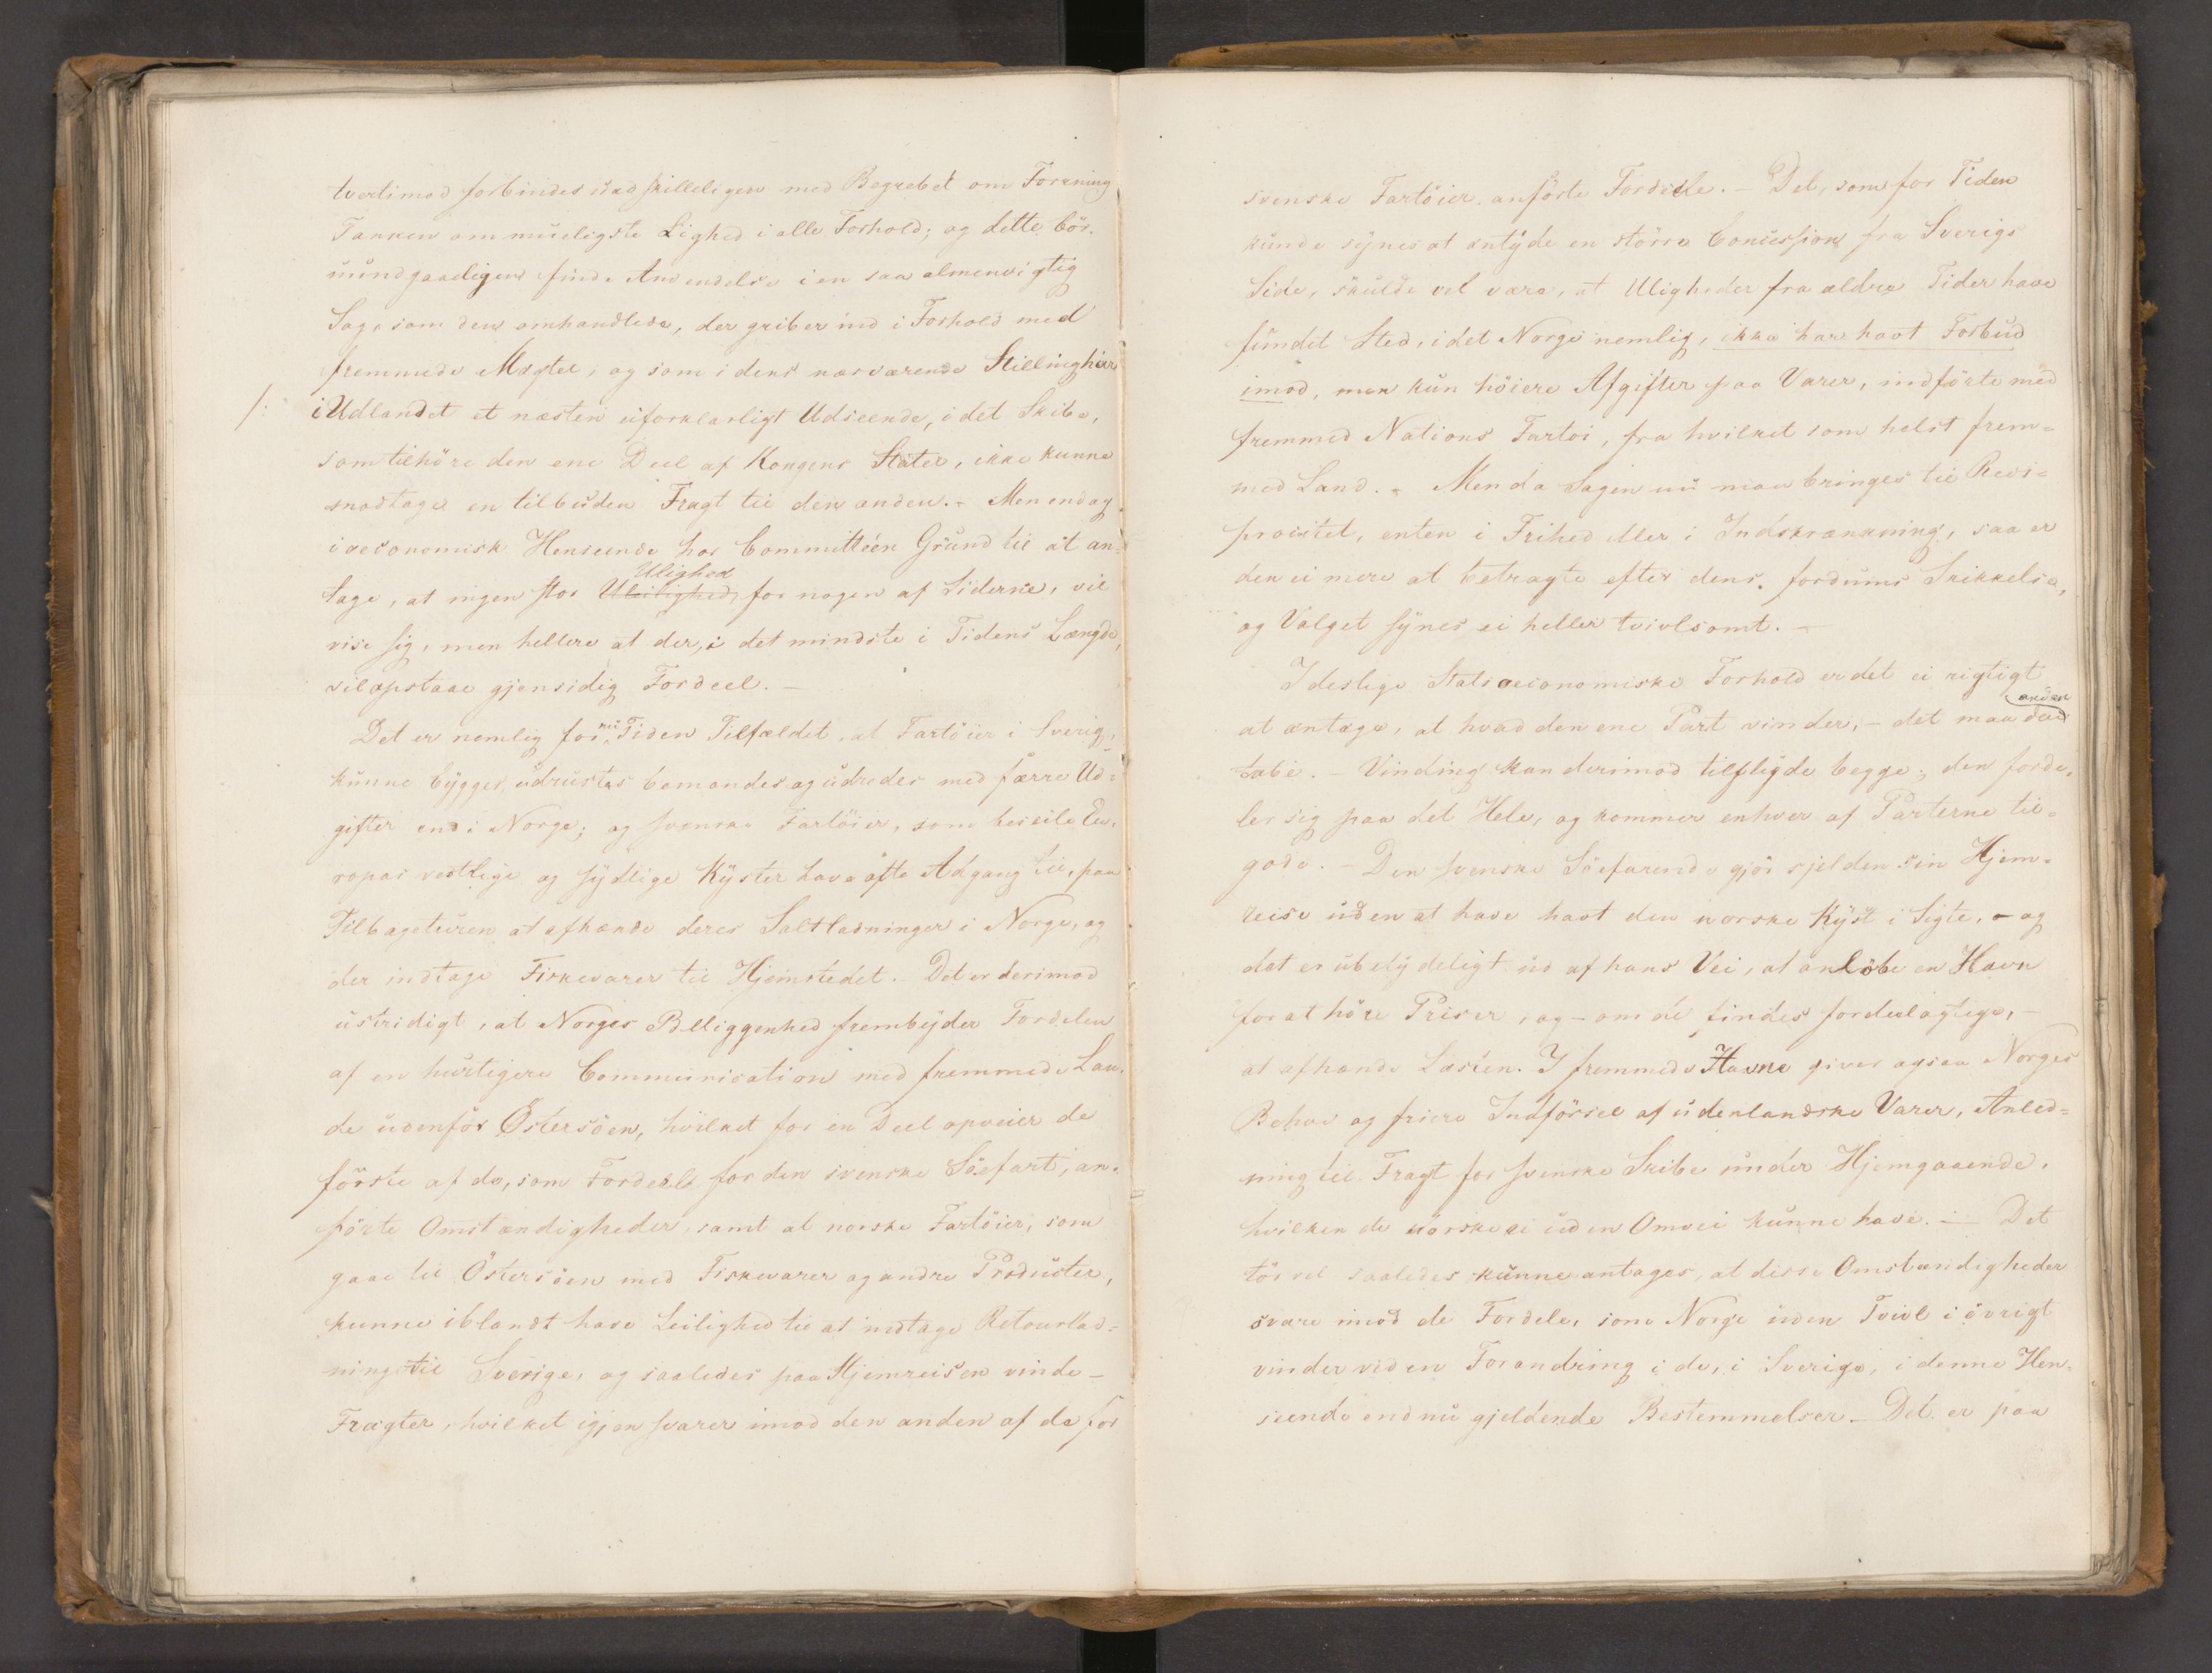 tvertimod forbindes uadskilleligen med Begrebet om Forening
Tanken om mueligste Lighed i alle Forhold; og dette bör
uundgaaeligen finde Anvendelse i en saa almenvigtig
Sag, som den omhandlede, der griber ind i Forhold med
fremmede Magter, og som i dens nærværende Stilling har
/: i Udlandet et næsten uforklarligt Udseende, i det Skibe,
som tilhöre den ene Deel af Kongens Stater, ikke kunne
modtage en tilbuden Fragt til den anden. - Men endog
i oeconomisk Henseende har Committéen Grund til at an-
Ulighed
tage, at ingen stor Uleilighed, for nogen af Siderne, vil
vise sig, men hellere at der, i det mindste i Tidens Længde,
vil opstaae gjensidig Fordeel. -
Det er nemlig for nu Tiden Tilfældet, at Fartöier i Sverig,
kunne bygges, udrustes bemandes og udredes med færre Ud-
gifter end i Norge; og svenske Fartöier, som beseile Eu-
ropas vestlige og sydlige Kyster have ofte Adgang til, paa
Tilbageturen at afhænde deres Saltladninger i Norge, og
der indtage Fiskevarer til Hjemstedet. - Det er derimod
ustridigt, at Norges Beliggenhed frembyder Fordelen
af en hurtigere Communication med fremmede Lan-
de udenfor Östersöen, hvilket for en Deel opveier de
förste af de, som Fordeele for den svenske Söefart, an-
förte Omstændigheder, samt at norske Fartöier, som
gaae til Östersöen med Fiskevarer og andre Producter,
kunne iblandt have Leilighed til at indtage Retourlad-
ning til Sverige, og saaledes paa Hjemreisen vinde -
Fragter, hvilket igjen svarer imod den anden af de for
svenske Fartöier anförte Fordele. - Det, som for Tiden
kunde synes at antyde en större Concession fra Sverigs
Side, skulde vel være, at Uligheder fra ældre Tider have
fundet Sted, idet Norge nemlig, ikke har havt Forbud
imod, men kun höiere Afgifter paa Varer, indförte med
fremmed Nations Fartoi, fra hvilket som helst frem-
med Land. - Men da Sagen nu maa bringes til Reci-
procitet, enten i Frihed eller i Indskrænkning, saa er
den ei mere at betragte efter dens fordums Skikkelse,
og Valget synes ei heller tvivlsomt. -
I deslige Statsoeconomiske Forhold er det ei rigtigt
anden
at antage, at hvad den ene Part vinder, - det maa den
tabe. - Vinding kan derimod tilflyde begge; den forde-
ler sig paa det Hele, og kommer enhver af Parterne til-
gode. - Den svenske Söefarende gjör sjelden sin Hjem-
reise uden at have havt den norske Kyst i Sigte, - og
det er ubetydeligt ud af hans Vei, at anlöbe en Havn
for at höre Priser, og - om de findes fordeelagtige, -
at afhænde Lasten. I fremmede Havne giver ogsaa Norges
Behov og friere Indförsel af udenlandske Varer, Anled-
ning til Fragt for svenske Skibe under Hjemgaaende,
hvilken de norske ei uden Omvei kunne have. - Det
tör vel saaledes kunne antages, at disse Omstændigheder
svare imod de Fordele, som Norge uden Tvivl i övrigt
vinder ved en Forandring i de, i Sverige, i denne Hen-
seende endnu gjeldende Bestemmelser. - Det er paa